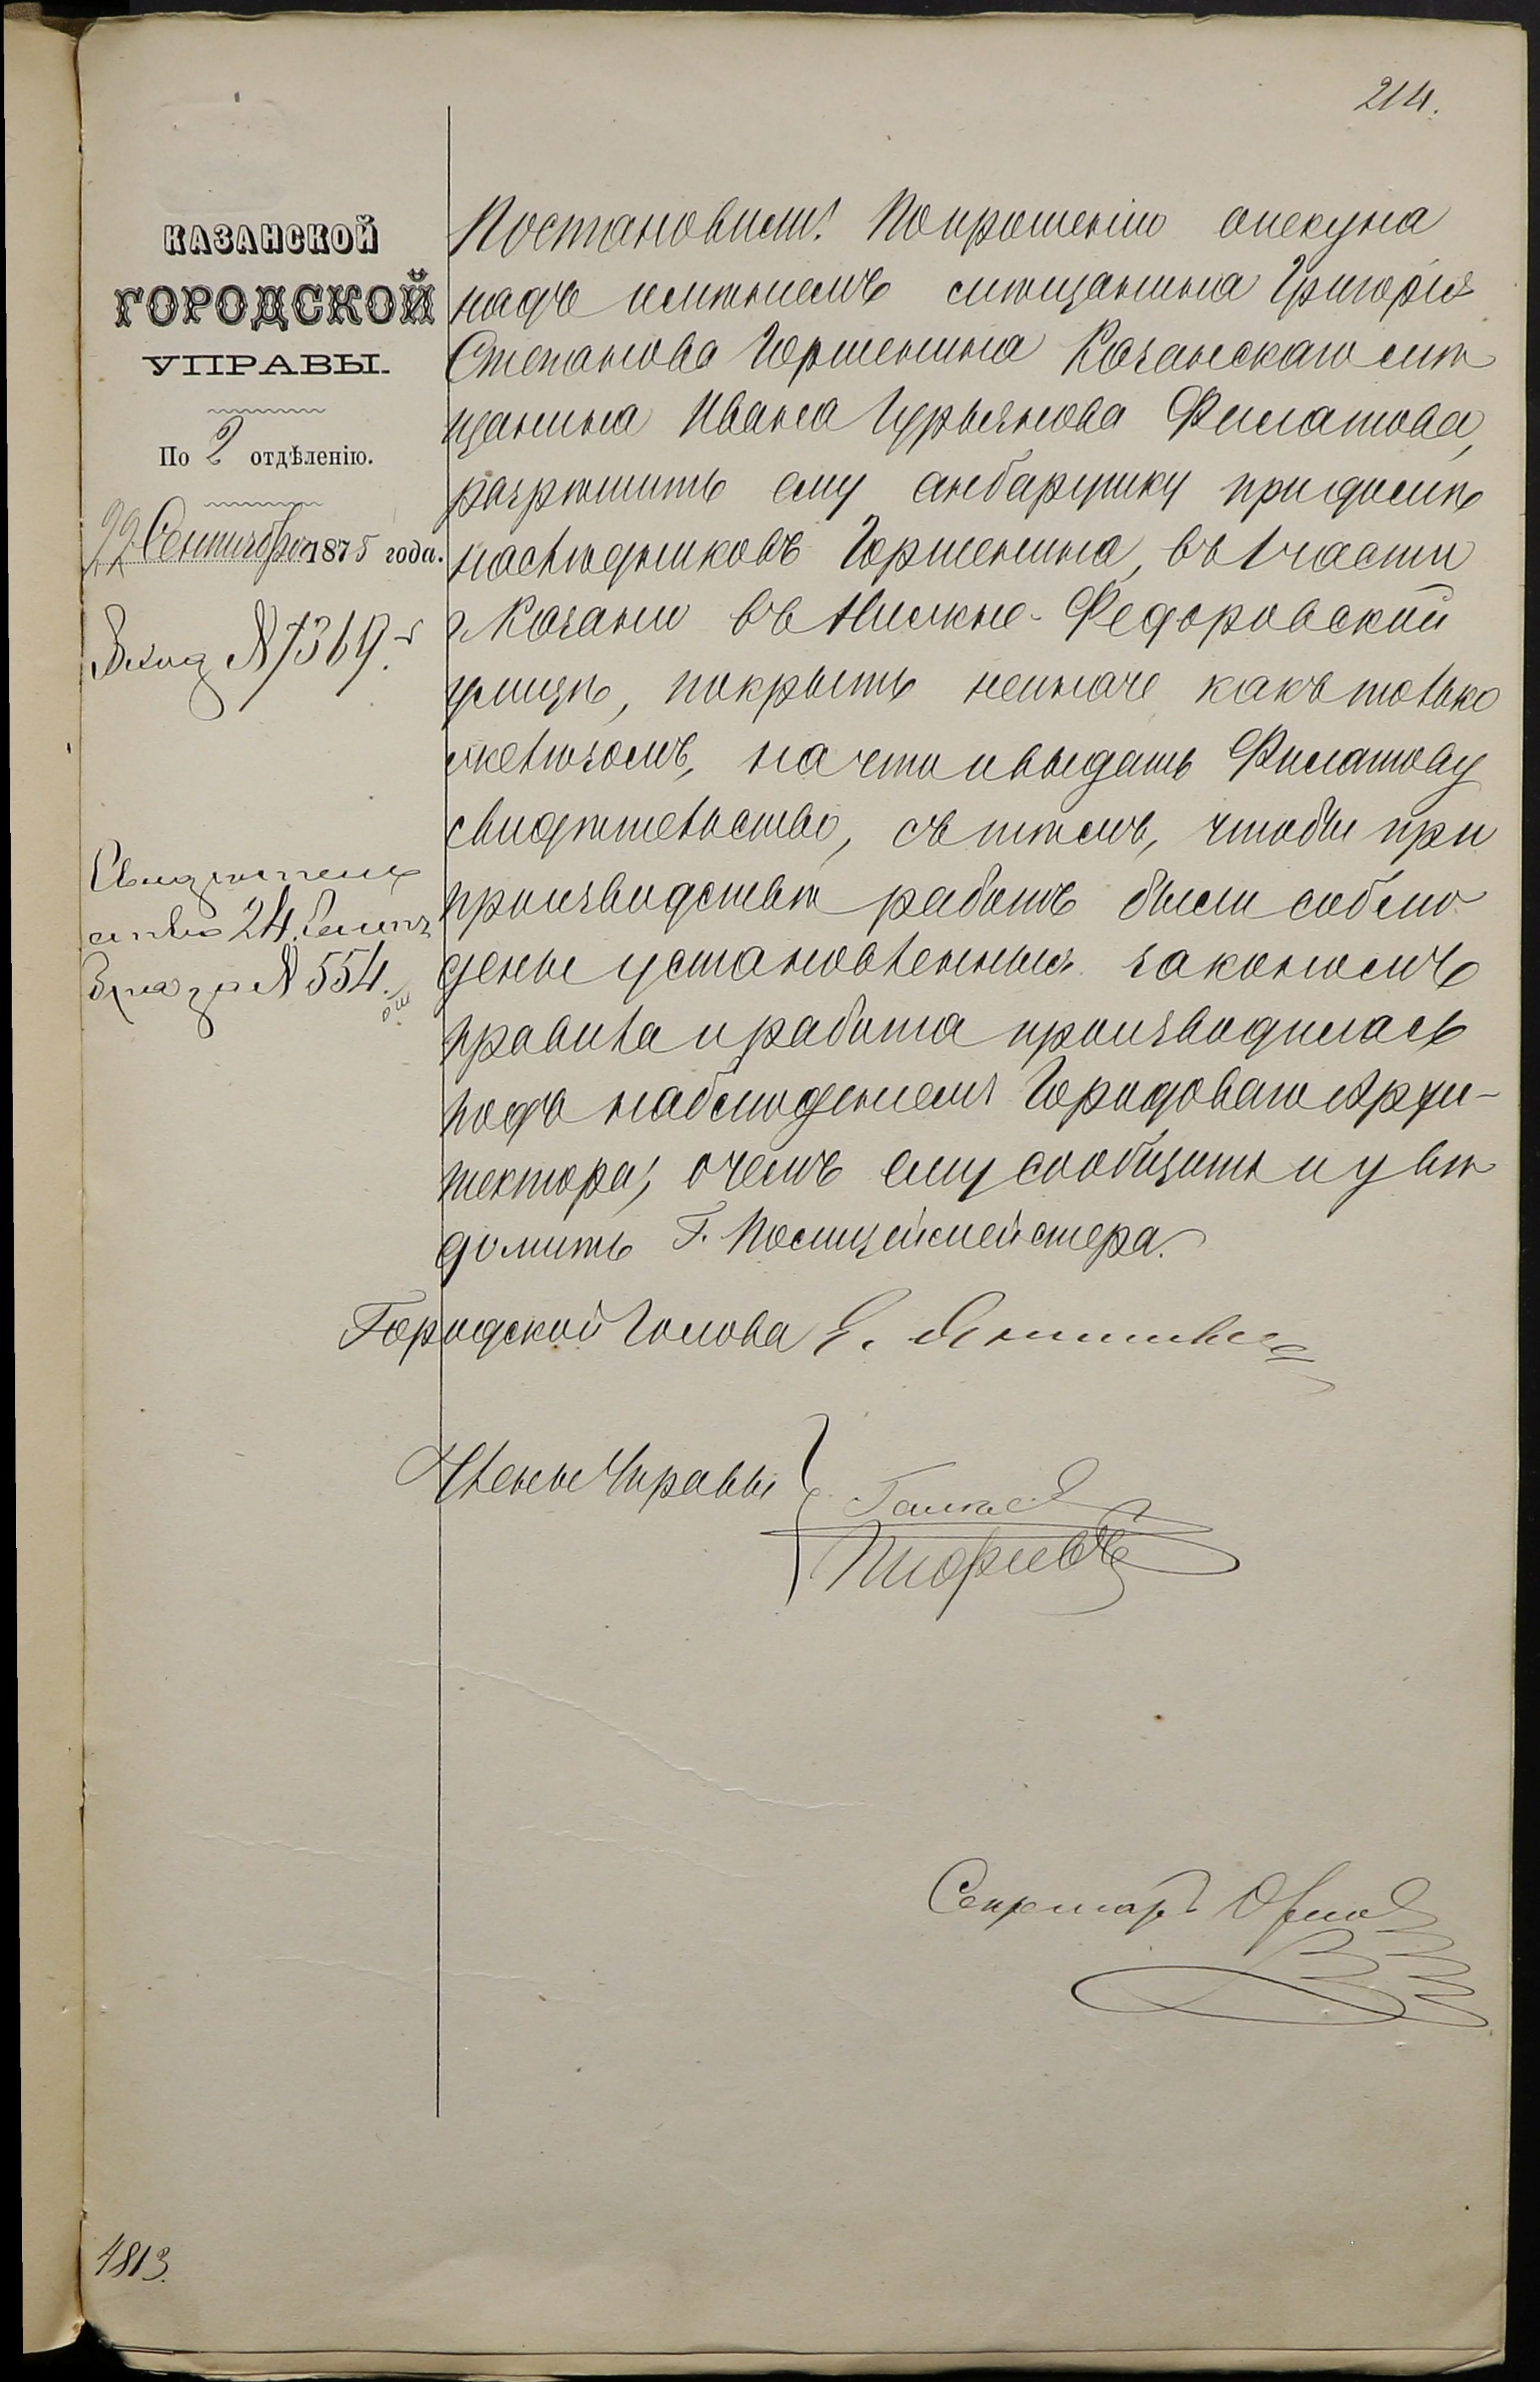 214.
КАЗАНСКОЙ
ГОРОДСКОЙ
УПРАВЫ.
По 2 отдѣленію.
22 Сентября 1875 года.
Вход № 7369.
Свидѣтель
ство 24 Сентя
бря за № 554.
Постановили: По прошенію опекуна
надъ имѣніемъ мѣщанина Григорія
Степанова Горшенина Казанскаго мѣ
щанина Ивана Гурьянова Филатова,
разрѣшить ему анбарушку при домѣ
наслѣдниковъ Горшенина, въ 1 части
г. Казани въ Нижне-Федоровской
улицѣ, покрыть неиначе какъ только
желѣзомъ, на что и выдать Филатову
свидѣтельство, съ тѣмъ, чтобы при
производствѣ работъ были соблю
дены установленныя закономъ
правила и работа производилась
подъ наблюденіемъ Городоваго Архи-
тектора, о чемъ ему сообщить и увѣ
домить Г. Полицеймейстера.
Городской Голова Е.
Члены Управы
Секретарь Орлов
4813.